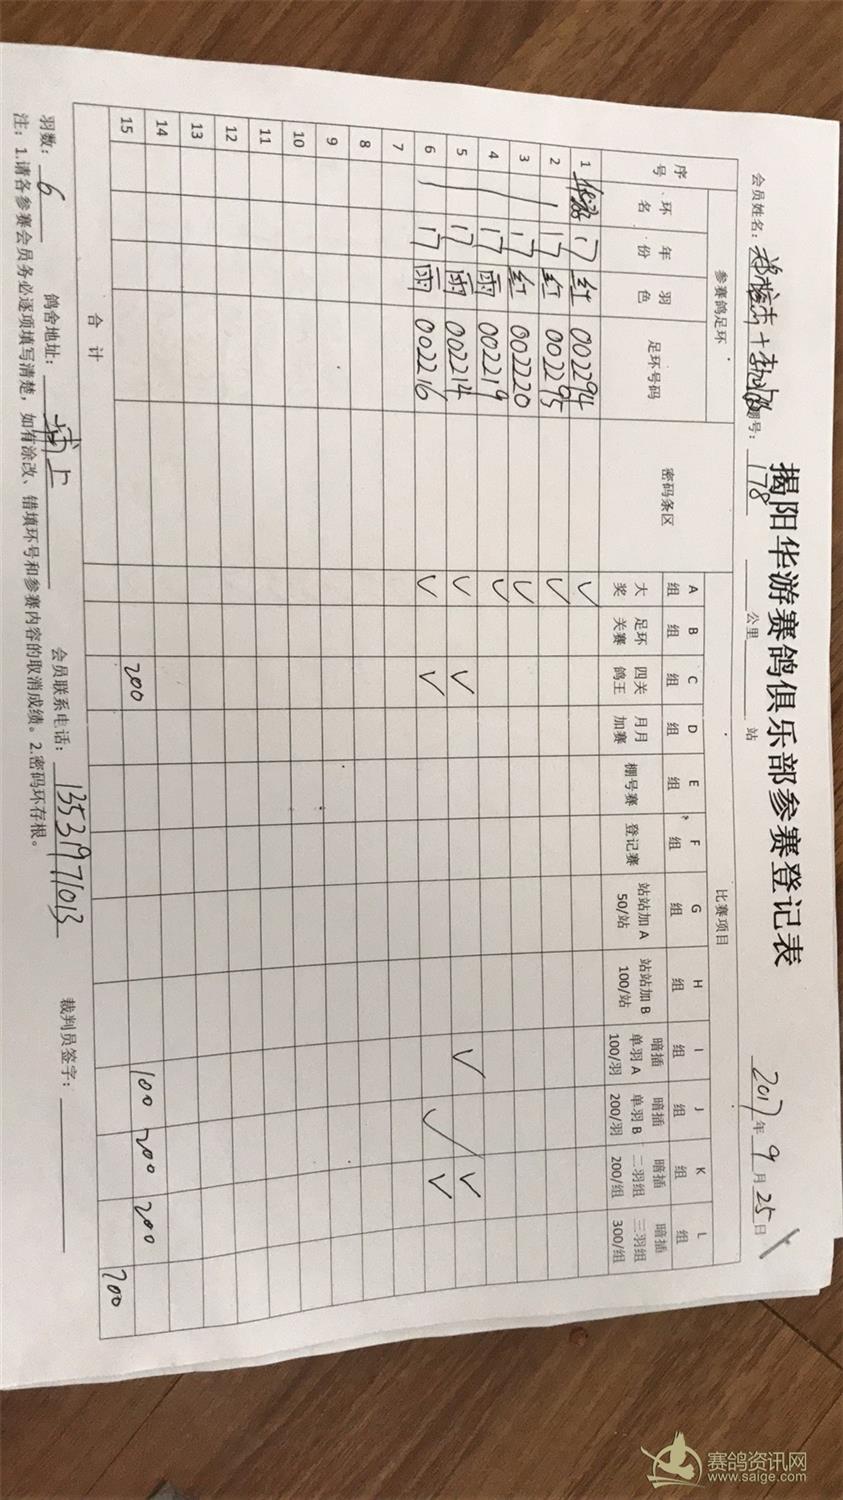 揭阳华游赛鸽俱乐部参赛登记表
会员姓名： 棚号：178 公里 站 2017年9月25日
参赛鸽足环 比赛项目
序号 环名 年份 羽色 足环号码 密码条区 A组 B组 C组 D组 E组 F组 G组 H组 I组 J组 K组 L组
大奖 足环关赛 四关鸽王 月月加赛 棚号赛 登记赛 站站加A 50/站 站站加B 100/站 暗插单羽A 100/羽 暗插单羽B 200/羽 暗插二羽组 200/组 暗插三羽组 300/组
1 17 红 002294 √
2 17 红 002295 √
3 17 红 002220 √
4 17 雨 002219 √
5 17 雨 002214 √ √ √ √
6 17 雨 002216 √ √ √ √
7
8
9
10
11
12
13
14 100 200 200
15 200
合计 700
羽数：6 鸽舍地址： 上 会员联系电话：13531971013 裁判员签字：
注：1.请各参赛会员务必逐项填写清楚，如有涂改、错填环号和参赛内容的取消成绩。2.密码环存根。
赛鸽资讯网
www.saige.com